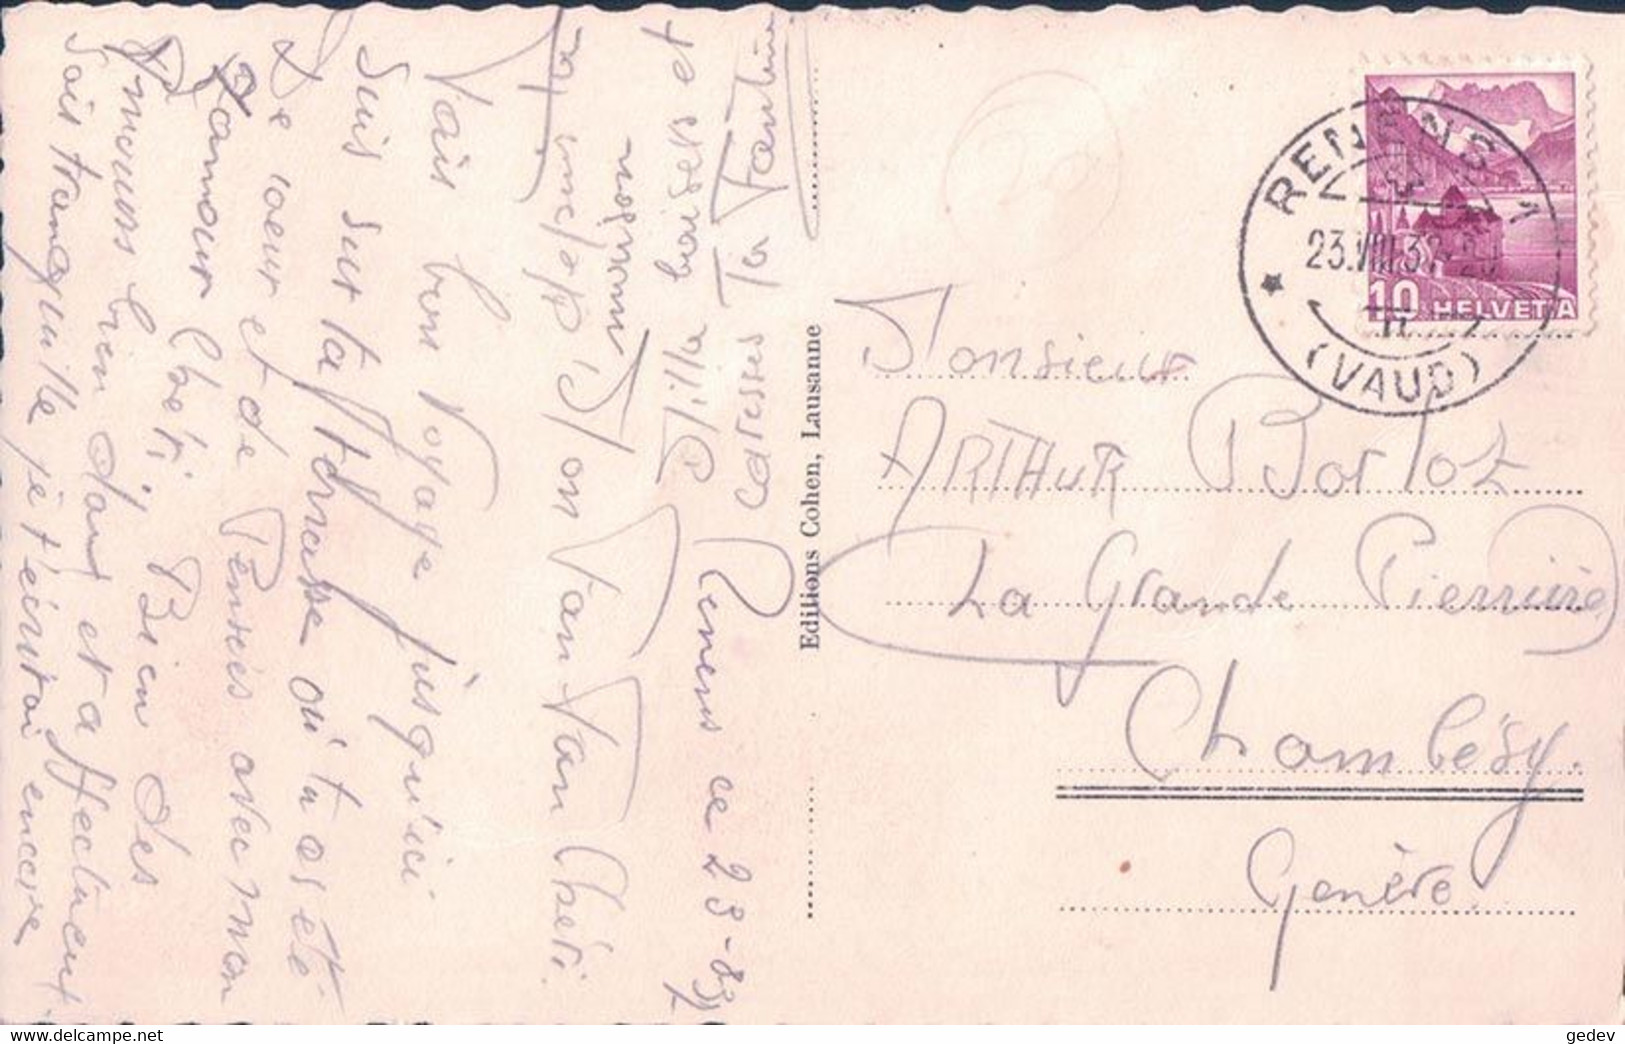 Renens ce 23-8-37
Mon Fanfan Chéri.
Fais bon Voyage jusqu'ici
Suis sur ta terrasse où tu as été
De coeur et de Pensées avec mon
Z'amour Chéri, Bien des
Amouss bien doux et affectueux
Sois tranquille je t'écrirai encore
baisers et
caresses Ta Fanfine
Editions Cohen, Lausanne
RENENS 1
23.VIII.37
(VAUD)
10 HELVETIA
Monsieur
ARTHUR Borloz
La Grande Pierrière
Chambésy.
Genève.
gedev